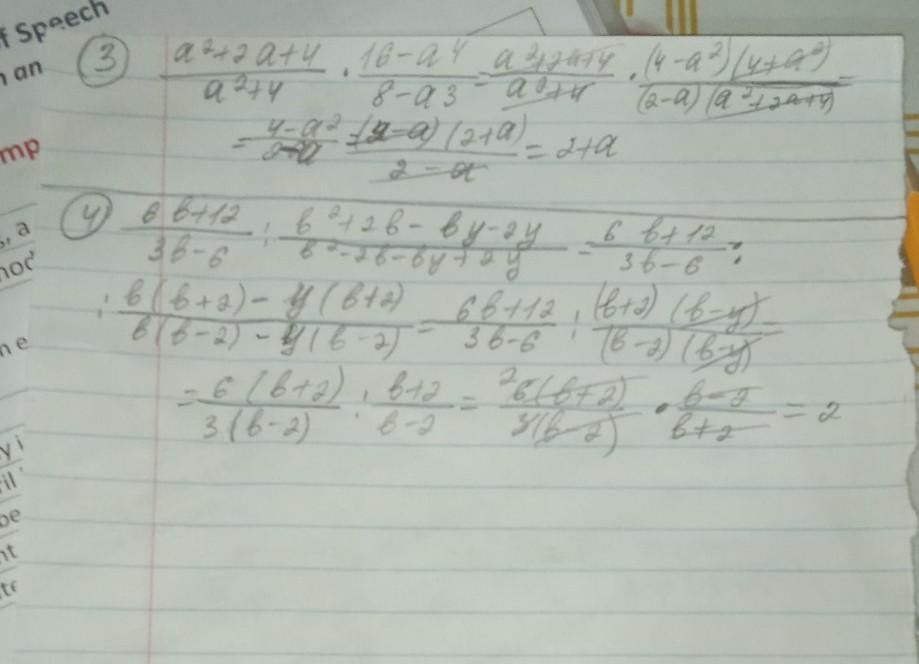 f Speech
n an
mp
, a
noc
n e
y i
ril
be
nt
te
③ (a²+2a+4)/(a²+4) · (16-a⁴)/(8-a3) = (a²+2a+4)/(a²+4) · ((4-a²)(4+a²))/((2-a)(a²+2a+4)) =
= (4-a²)/(2-a) = ((2-a)(2+a))/(2-a) = 2+a
④ (6b+12)/(3b-6) : (b²+2b-by-2y)/(b²-2b-by+2y) = (6b+12)/(3b-6) :
: (b(b+2)-y(b+2))/(b(b-2)-y(b-2)) = (6b+12)/(3b-6) : ((b+2)(b-y))/((b-2)(b-y)) =
= (6(b+2))/(3(b-2)) : (b+2)/(b-2) = (²6(b+2))/(3(b-2)) · (b-2)/(b+2) = 2